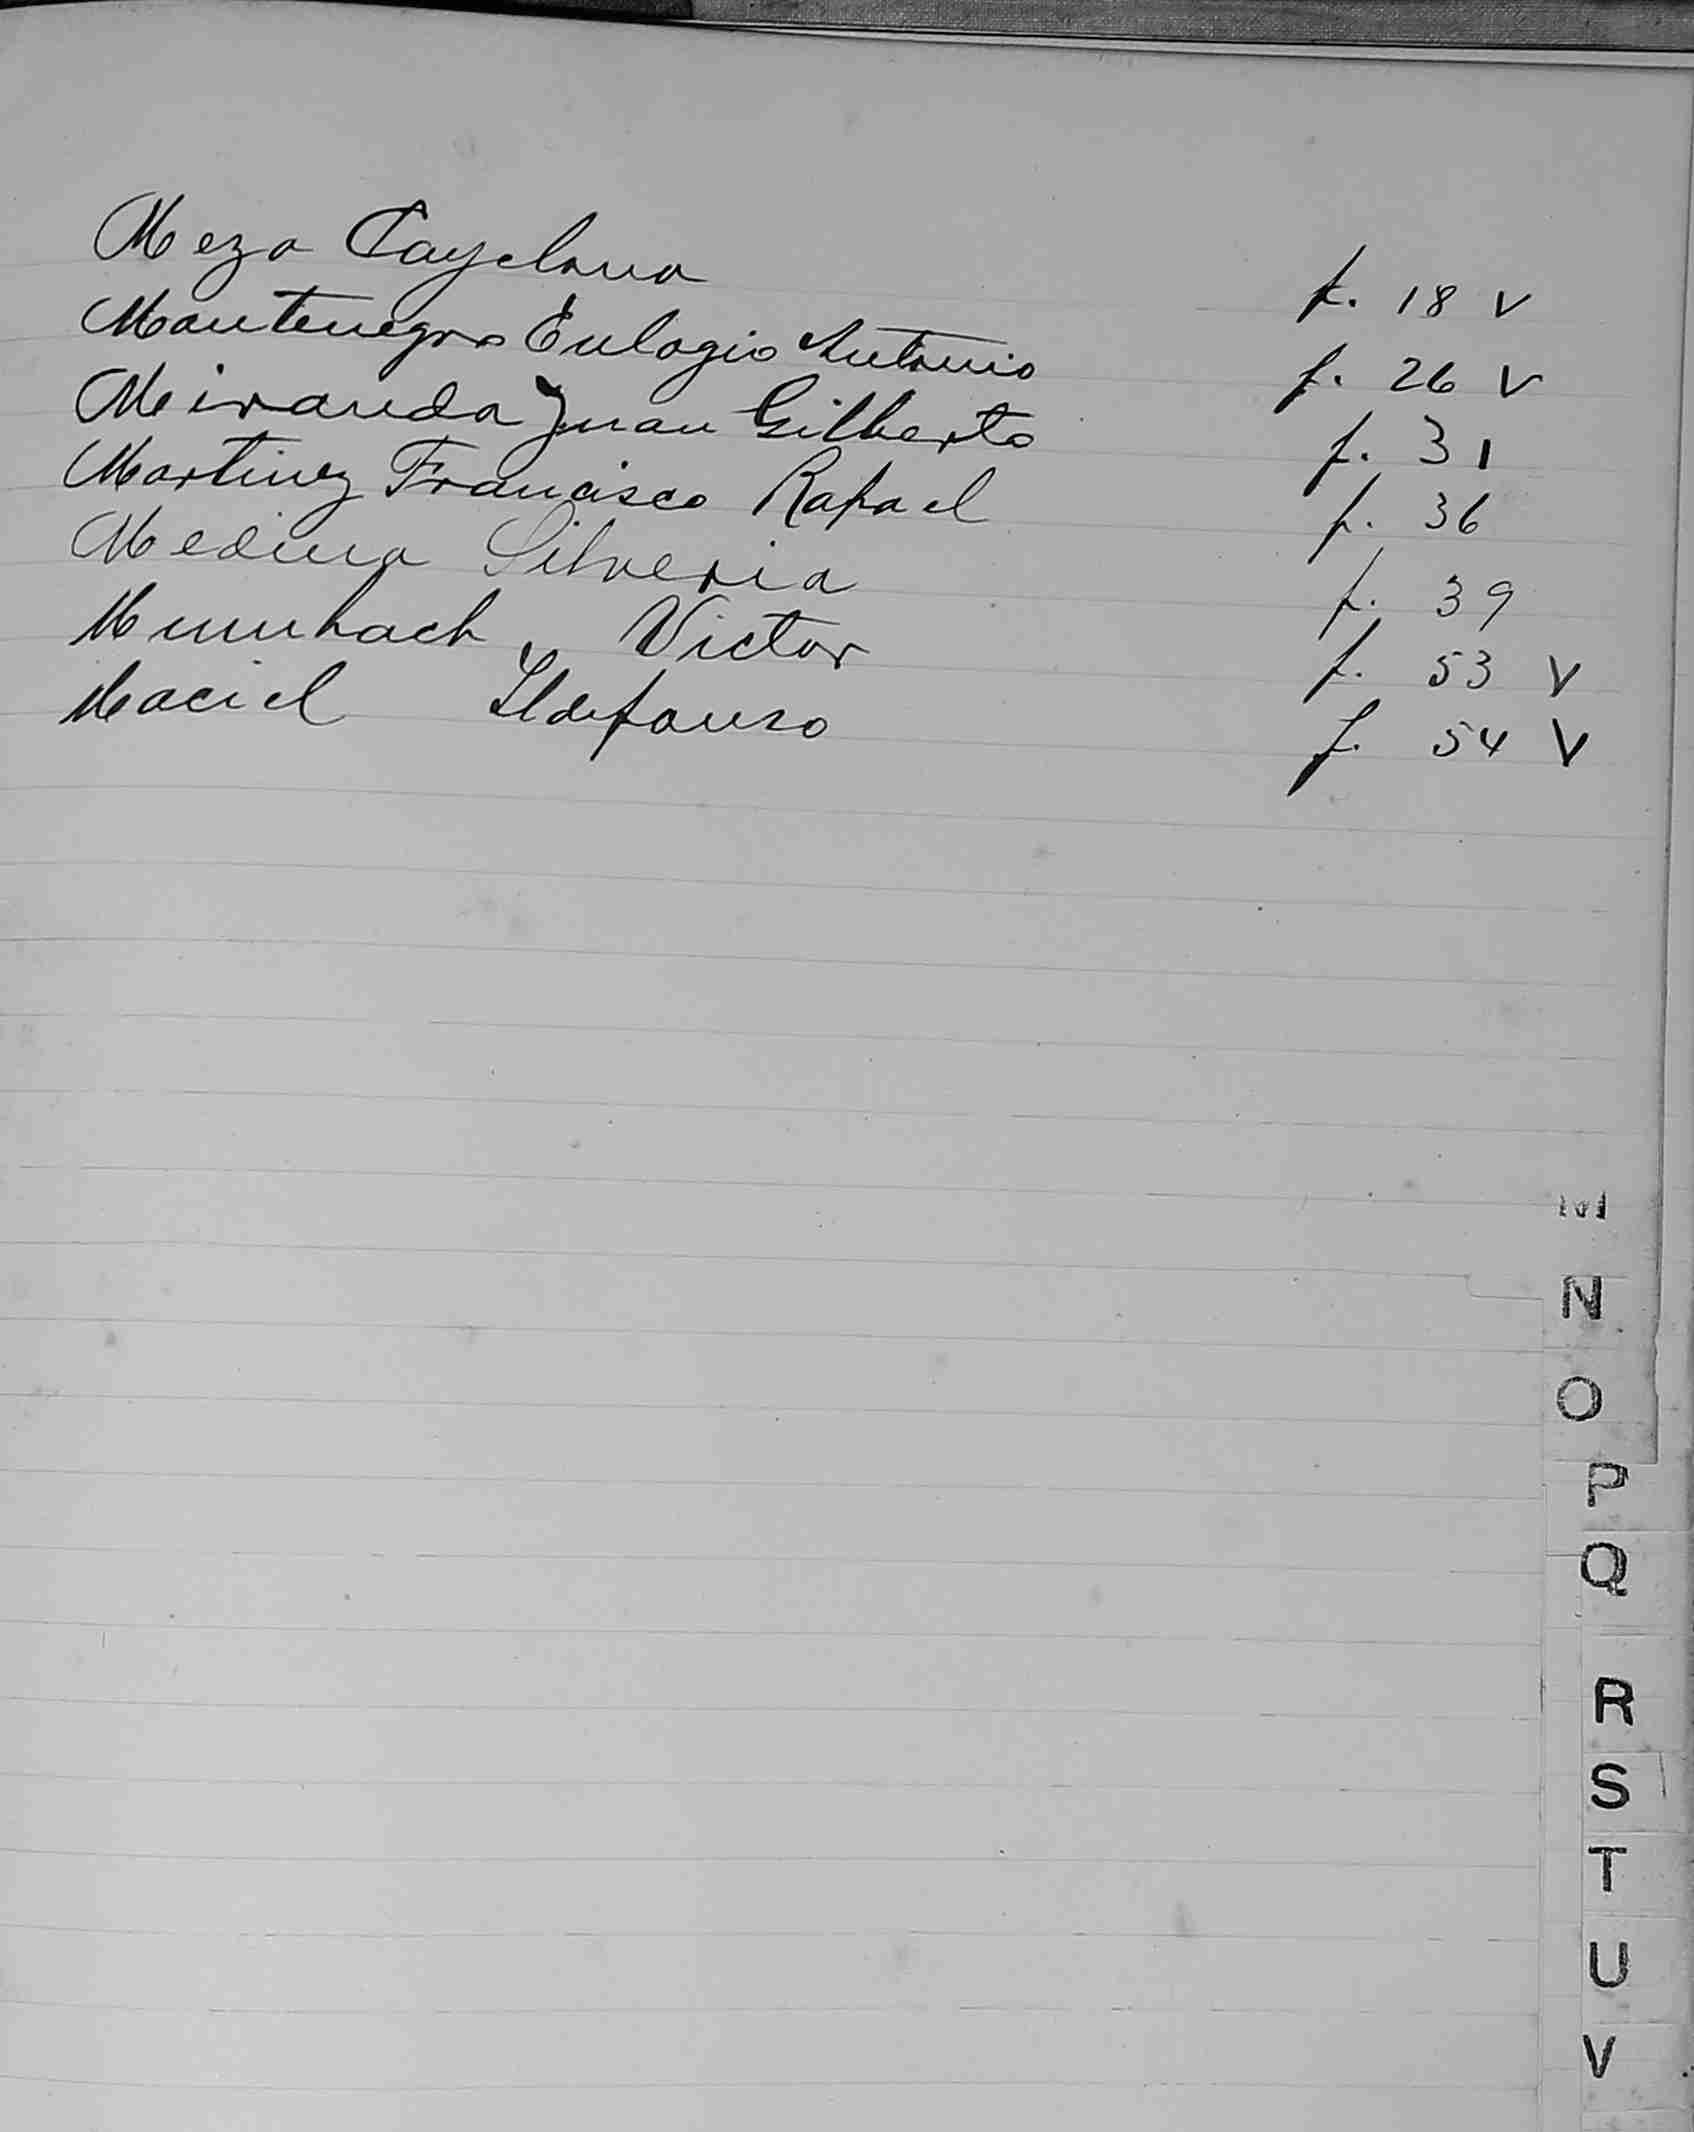 Meza Cayetana f. 18 v
Montenegro Eulogio Antonio f. 26 v
Miranda Juan Gilberto f. 31
Martinez Francisco Rafael f. 36
Medina Silveria f. 39
Victor f. 53 v
Maciel Ildefonso f. 54 v
M
N
O
P
Q
R
S
T
U
V